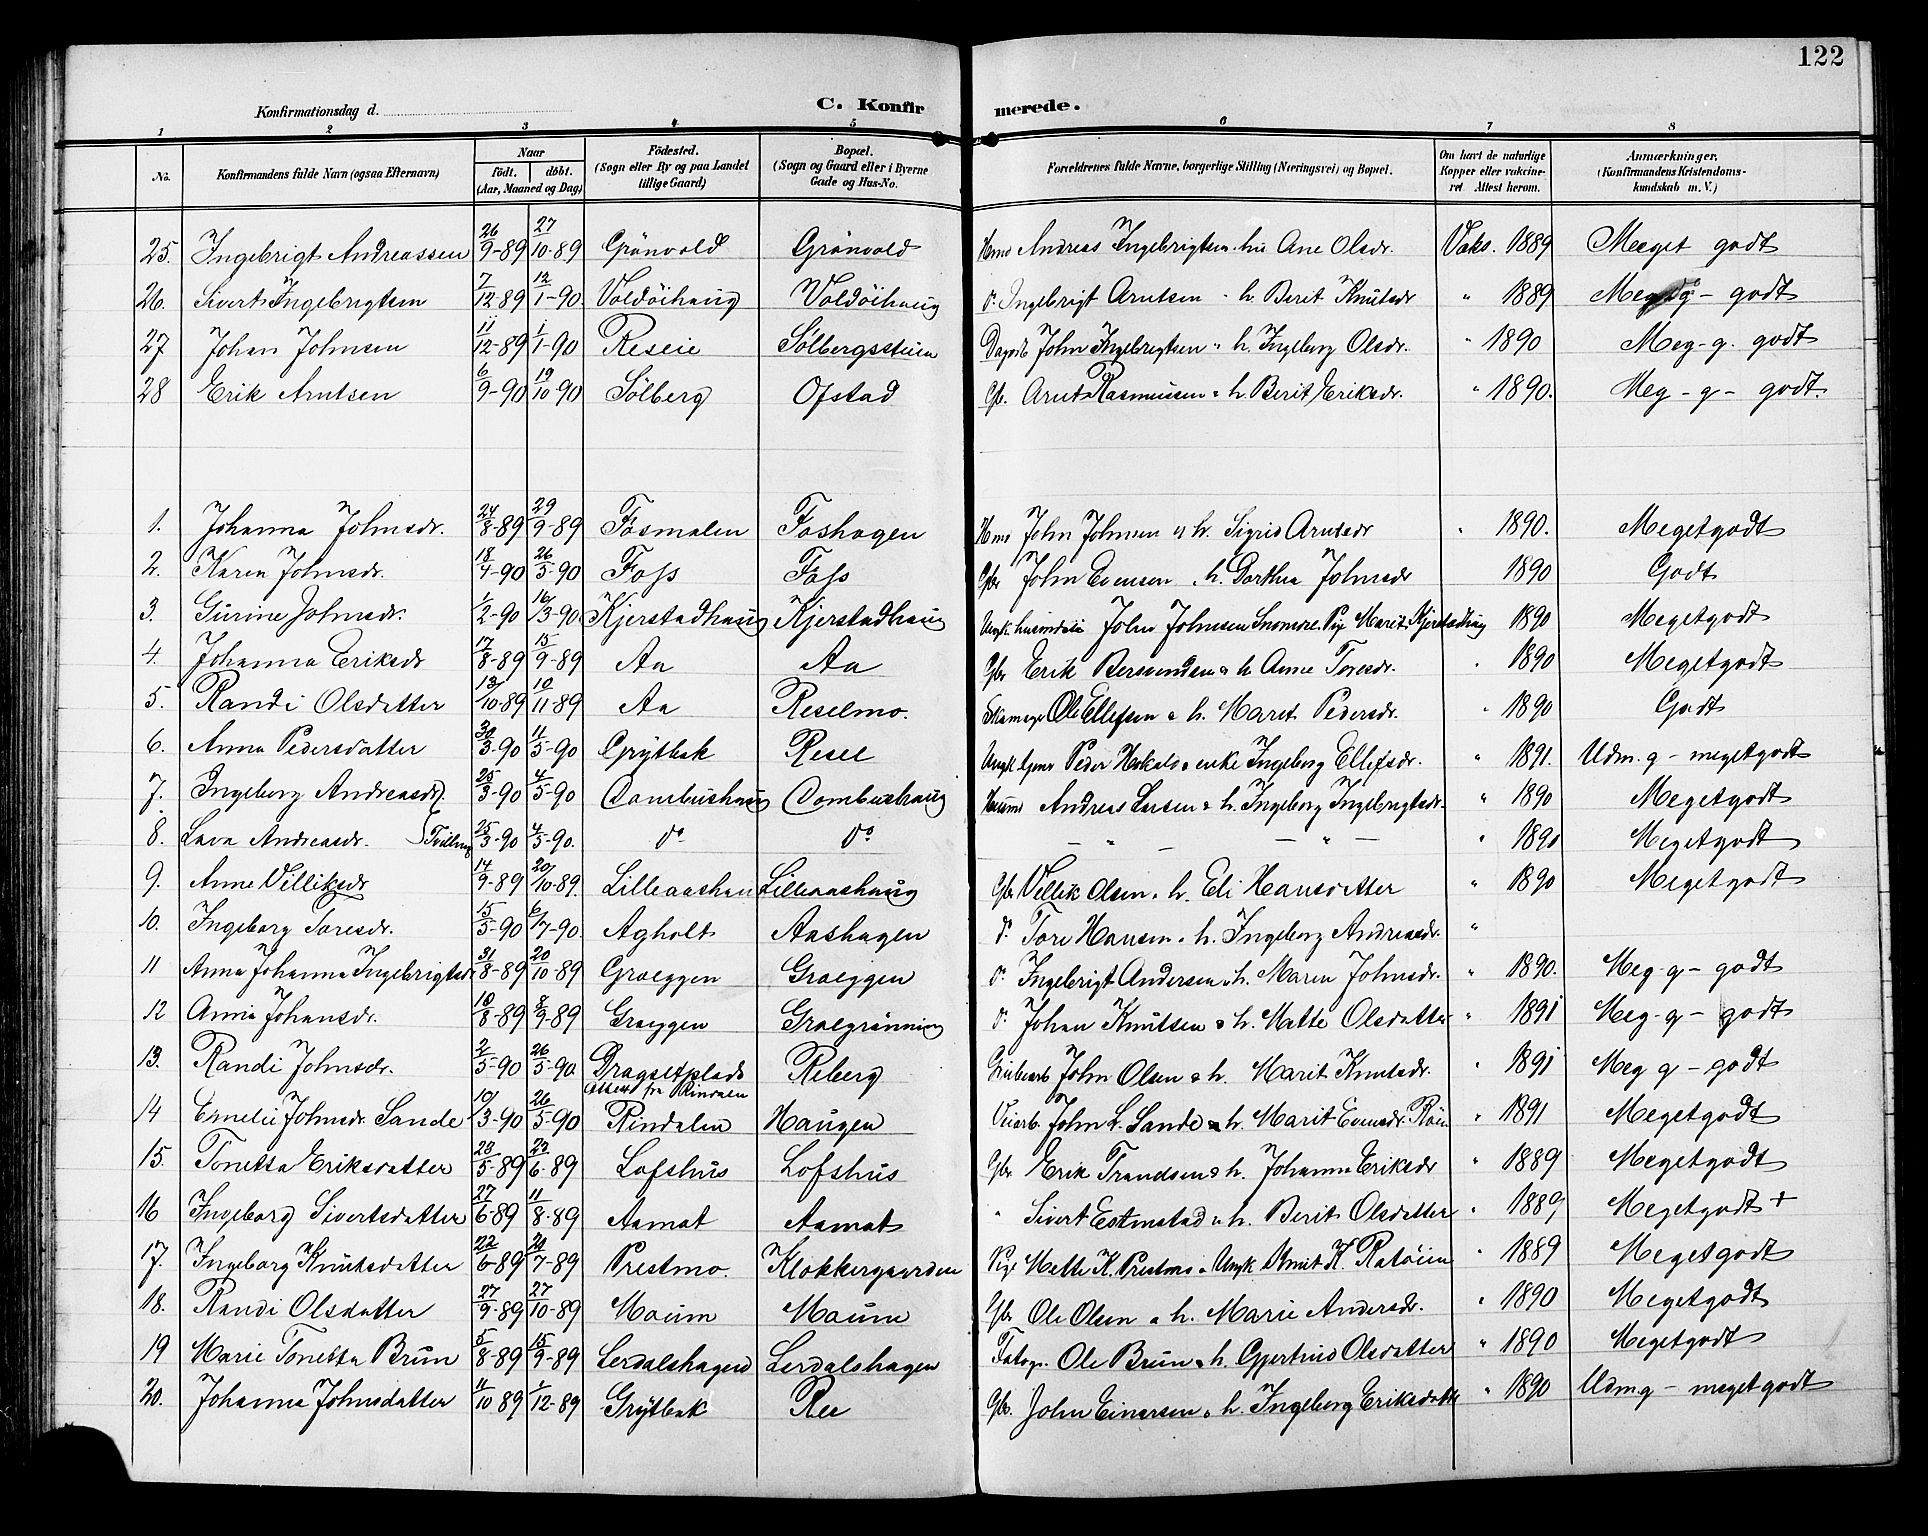 122
Konfirmationsdag d.
C. Konfirmerede.
1 2 3 4 5 6 7 8
No. Konfirmandens fulde Navn (ogsaa Efternavn) Naar födt. döbt. (Aar, Maaned og Dag) Födested. (Sogn eller By og paa Landet tillige Gaard) Bopæl. (Sogn og Gaard eller i Byerne Gade og Hus-No. Forældrenes fulde Navne, borgerlige Stilling (Næringsvei) og Bopæl. Om havt de naturlige Kopper eller vakcineret. Attest herom. Anmærkninger. (Konfirmandens Kristendomskundskab m. V.)
25. Ingebrigt Andreassen 26/9-89 27/10-89 Grönvold Grönvold Hmd Andreas Ingebrigtsen. hu Ane Olsdr. Vaks. 1889 Meeget godt
26. Sivert Ingebrigtsen 7/12-89 12/1-90 Voldöihaug Voldöihaug do Ingebrigt Arntsen - h. Berit Knutsdr " 1889 godt
27 Johan Johnsen 11/12-89 1/1-90 Reseie Sölbergsstuen John Ingebrigtsen " h. Ingeborg Olsdr. " 1890 Meg-g. godt
28 Erik Arntsen 6/9-90 19/10-90 Sölberg Ofstad Gb. Arnt Rasmussen " h. Berit Eriksdr. " 1890. Meg-g- godt.
1. Johanna Johnsdr. 24/8-89 29/9-89 Fosmalen Foshagen Hmd John Johnsen og h. Sigrid Arntsdr " 1890. Megetgodt
2. Karen Johnsdr. 18/4-90 26/5-90 Foss Foss Gbr John Evensen " h. Dorthea Johnsdr 1890 Godt
3. Gurine Johnsdr. 1/2-90 16/3-90 Kjerstadhaug Kjerstadhaug John Johnsen Snomore. Pig Marit Kjerstadhaug 1890 Megetgodt
4. Johanna Eriksdr 17/8-89 15/9-89 Aa Aa Gbr Erik Bersvendsen & h. Anne Toresdr. " 1890 Megetgodt
5. Randi Olsdatter 13/10-89 10/11-89 Aa Reselmo. Skomager Ole Ellefsen & h. Marit Pedersdr. " 1890 Godt
6. Anna Pedersdatter 30/3-90 11/5-90 Grytbak Resel Peder & enke Ingeborg Ellefsdr. " 1891. Udm. g- megetgodt
7. Ingeborg Andreasdr. 25/3-90 4/5-90 Dombushaug Dombushaug Andreas Larsen & h. Ingeborg Ingebrigtsdr " 1890 Megetgodt
8. Lava Andreasdr. Tvilling 25/3-90 4/5-90. do do — " — — " — " 1890 Megetgodt
9. Anne Villiksdr 14/9-89 20/10-89. Lilleaashaug Lilleaashaug Gbr Villik Olsen. h. Eli Hansdatter " 1890 Megetgodt
10. Ingeborg Toresdr. 15/5-90 6/7-90. Agholt Aashagen do Tore Hansen. h. Ingeborg Andreasdr. "
11 Anna Johanna Ingebrigtsdr 31/8-89 20/10-89 Graeggen Graeggen do Ingebrigt Andersen. h. Maren Johnsdr. " 1890. Meg-g- godt
12 Anna Johansdr. 10/8-89 8/9-89 Graeggen Graegrönning do Johan Knutsen & h. Mette Olsdatter " 1891 Meg-g- godt
13. Randi Johnsdr. 2/5-90 26/5-90 Dragsetplads Reberg John Olsen & h. Marit Knutsdr. " 1891 Meg g - godt
Attest fra Rindalen
14 Emelie Johnsdr. Sande 10/3-90 26/5-90 Rindalen Haugen John L. Sande & h. Marit Evensdr. " 1891 Megetgodt
15. Tonetta Eriksdatter 23/5-89 23/6-89 Lofshus Lofshus Gbr Erik Trondsen & h. Johanna Eriksdr " 1889 Megetgodt
16 Ingeborg Sivertsdatter 27/6-89 11/8-89 Aamot Aamot " Sivert Estenstad " h. Berit Olsdatter " 1889 Megetgodt +
17. Ingeborg Knutsdatter 22/6-89 21/7-89 Prestmo. Klokkergaarden Pige Mette K. Prestmo. Ungk. Knut K. Ratöien " 1889 Megetgodt
18. Randi Olsdatter 27/9-89 27/10-89 Moum Moum Gbr Ole Olsen & h. Marie Andersdr. " 1890 Megetgodt
19 Marie Tonetta Brun 5/8-89 15/9-89 Lerdalshagen Lerdalshagen Fotogr. Ole Brun & h. Gjertrud Olsdatter " 1890 Megetgodt
20. Johanna Johnsdatter 11/10-89 1/12-89 Grytbak Ree Gbr. John Einarsen & h. Ingeborg Eriksdatter " 1890 Udm g - megetgodt